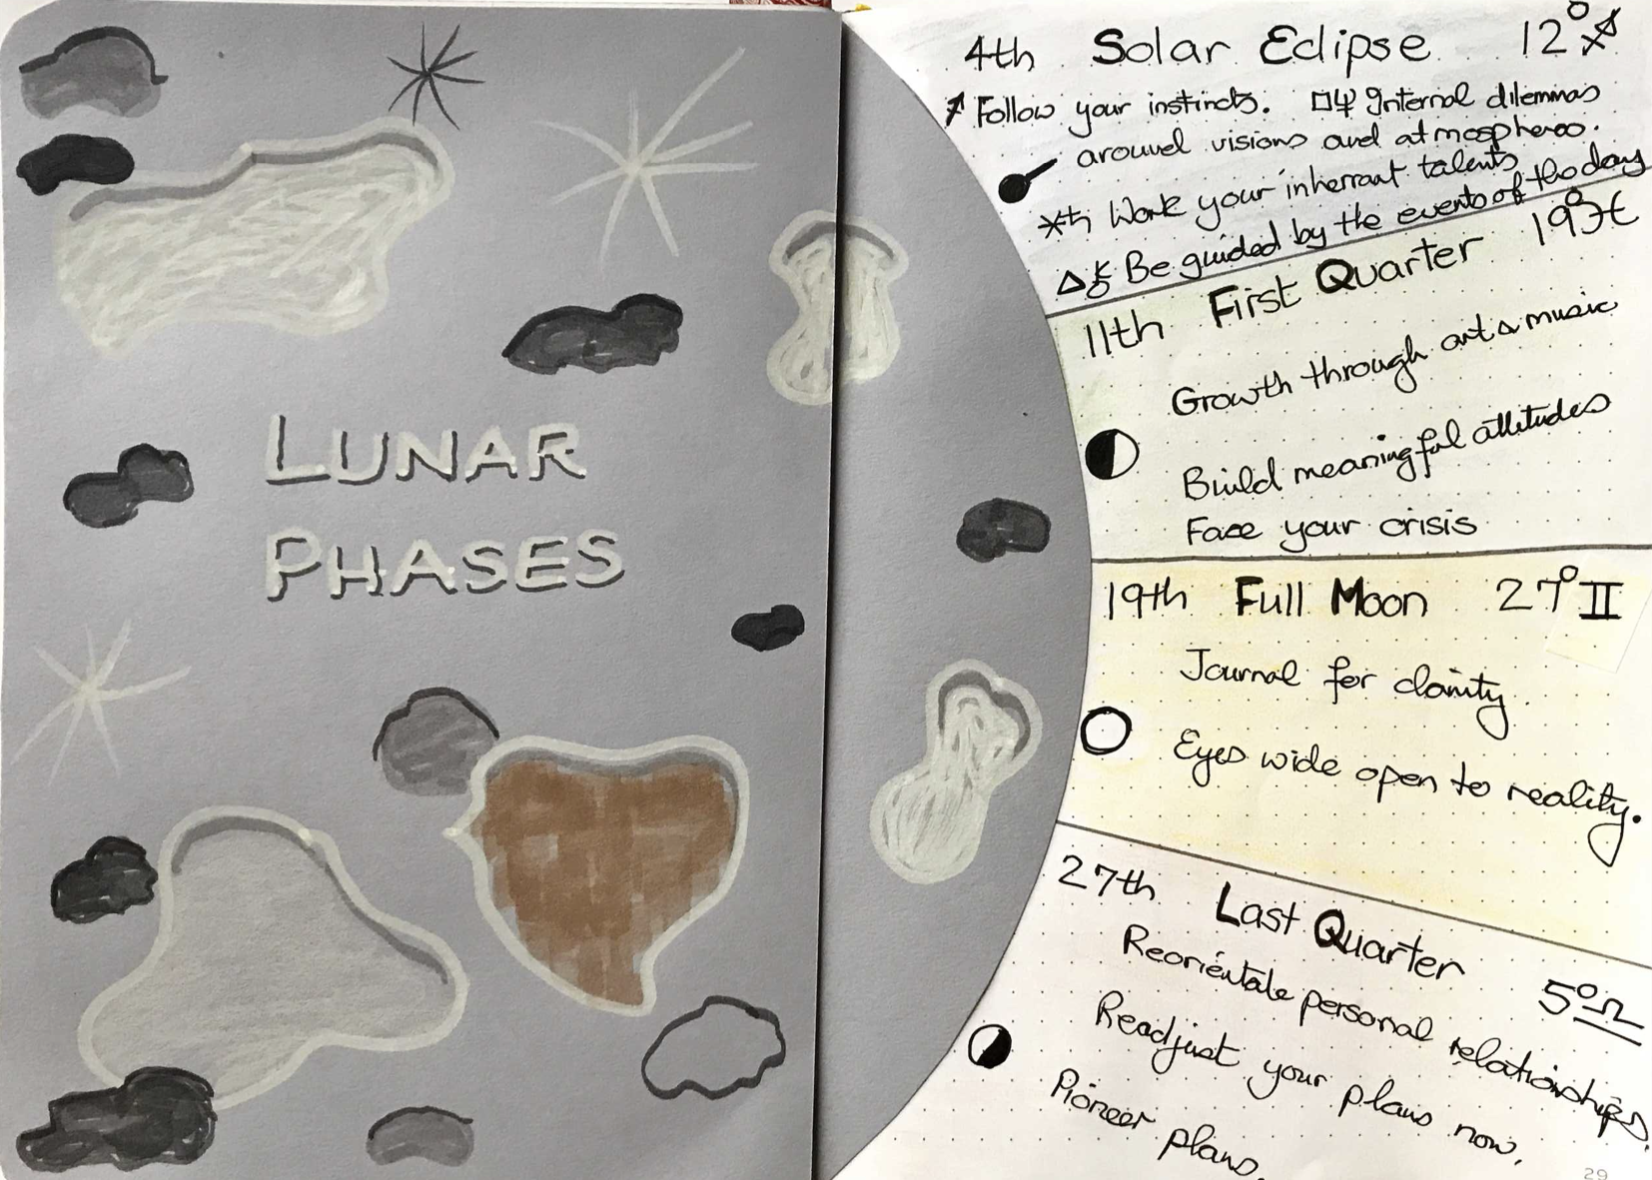 LUNAR
PHASES
4th Solar Eclipse 12° ♐
↗ Follow your instincts. □♆ Internal dilemmas
around visions and atmospheres.
⚹♄ Work your inherrant talents
△⚷ Be guided by the events of the day
11th First Quarter 19° ♓
Growth through art & music
Build meaningful attitudes
Face your crisis
19th Full Moon 27° ♊
Journal for clarity.
Eyes wide open to reality.
27th Last Quarter 5° ♎
Reorientate personal relationships.
Readjust your plans now.
Pioneer plans.
29